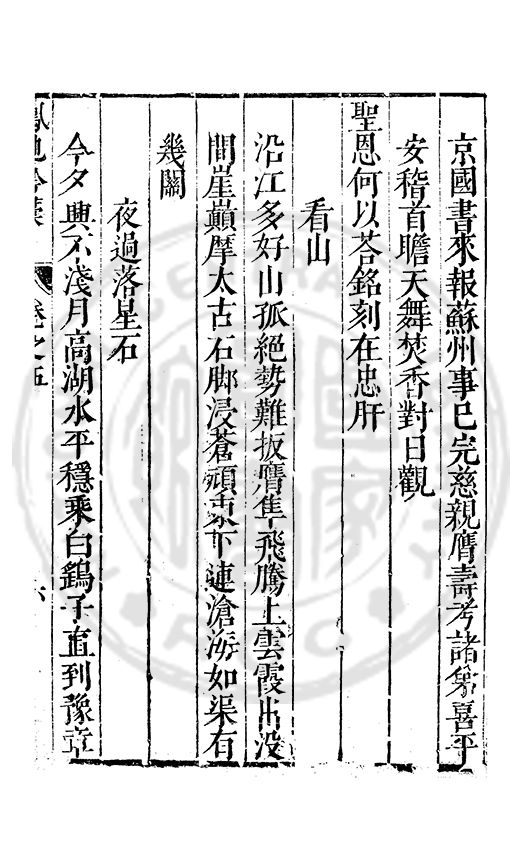 京國書來報蘇州事已完慈親膺壽考諸弟喜平
安稽首瞻天舞焚香對日觀
聖恩何以荅銘刻在忠肝
看山
沿江多好山孤絕勢難扳鷹隼飛騰上雲霞出沒
間崖巔摩太古石脚浸蒼頑東下連滄海如渠有
幾關
夜過落星石
今夕興不淺月高湖水平穩乘白鷁子直到豫章
卷之五
六